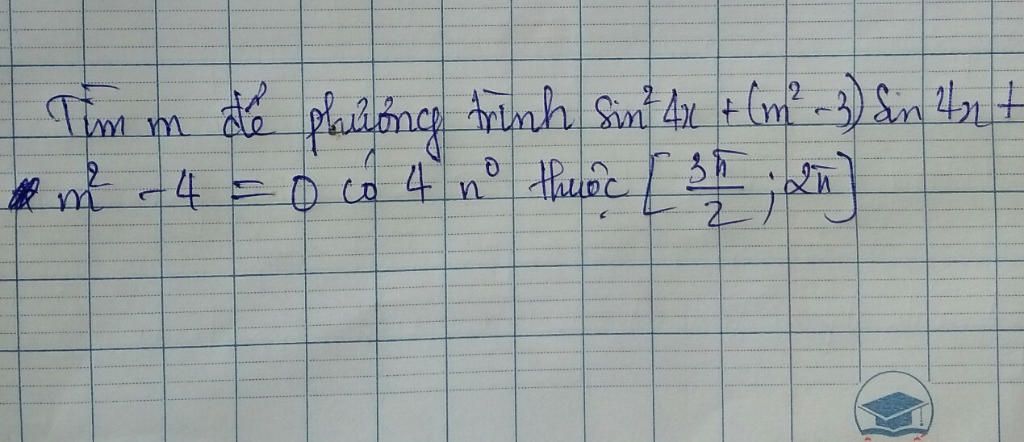 Tìm m để phương trình sin² 4x + (m² - 3) sin 4x +
m² - 4 = 0 có 4 n⁰ thuộc [3π/2 ; 2π]